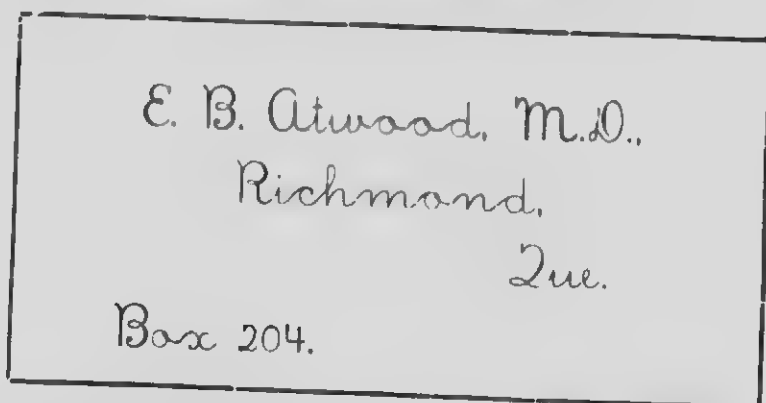 E. B. Atwood, M.D.,
Richmond,
Que.
Box 204.